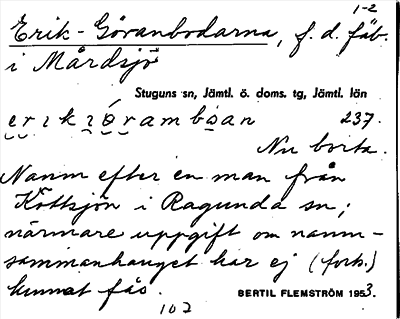 1-2
Erik-Göranbodarna, f.d. fäb.
i Mårdsjö
Stuguns sn, Jämtl. ö. doms. tg, Jämtl. län
237.
Nu borta.
Namn efter en man från
Köttsjön i Ragunda sn;
närmare uppgift om namn-
sammanhanget har ej (forts.)
kunnat fås.
BERTIL FLEMSTRÖM 1953.
102